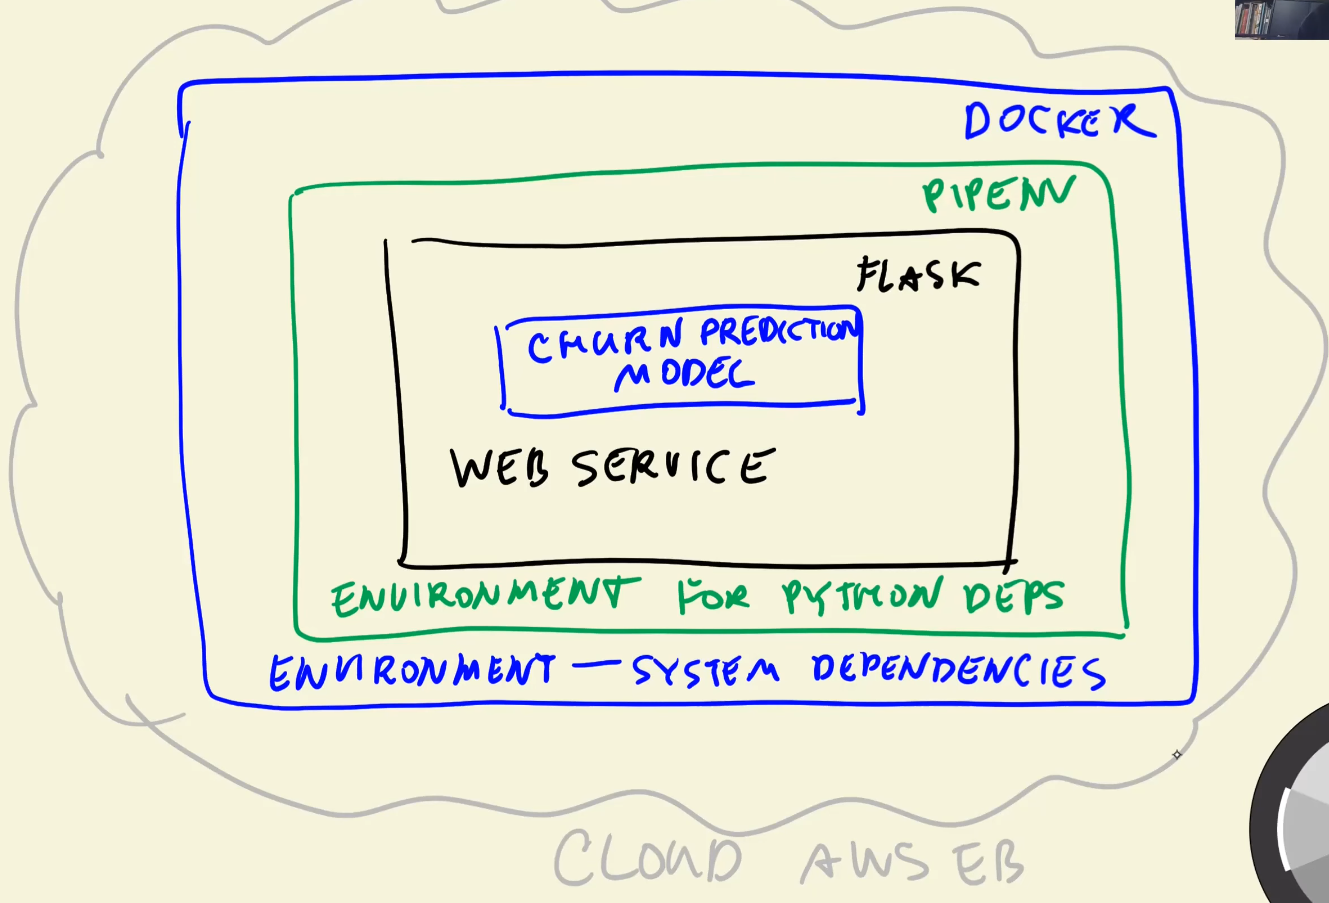 DOCKER
PIPENV
FLASK
CHURN PREDICTION
MODEL
WEB SERVICE
ENVIRONMENT FOR PYTHON DEPS
ENVIRONMENT — SYSTEM DEPENDENCIES
CLOUD AWS EB